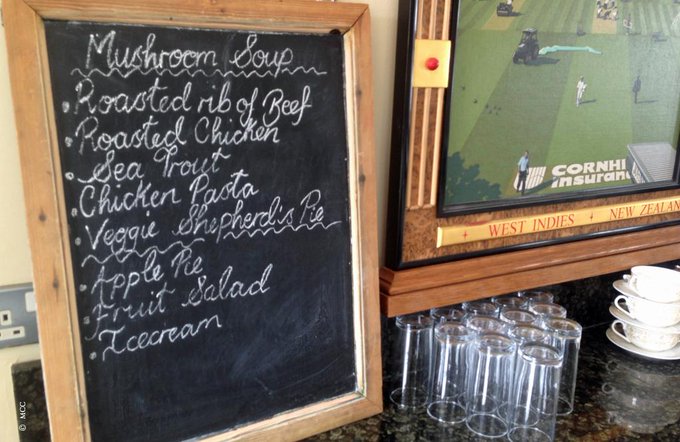 Mushroom Soup
• Roasted rib of Beef
• Roasted Chicken
• Sea Trout
• Chicken Pasta
• Veggie Shepherd's Pie
• Apple Pie
• Fruit Salad
• Icecream
CORNHI
Insuran
WEST INDIES + NEW ZEALAN
© MCC